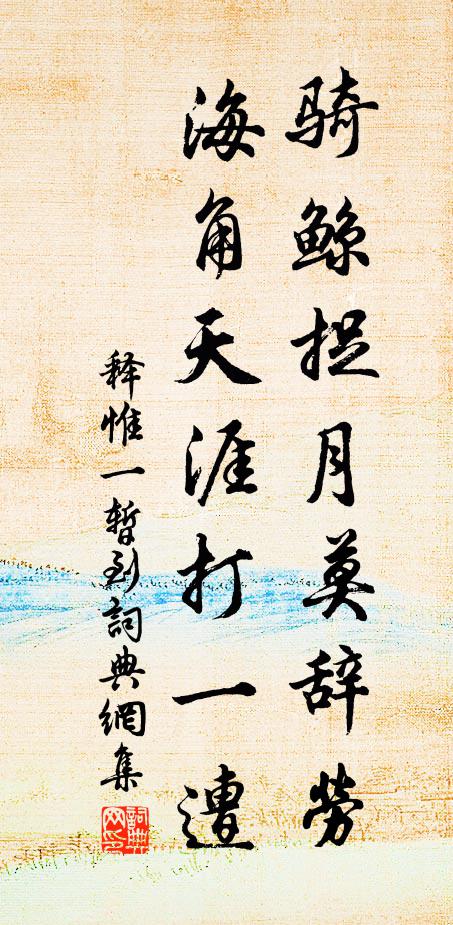 骑鲸捉月莫辞劳
海角天涯打一遭
释惟一暂到詞典網集
詞典网印